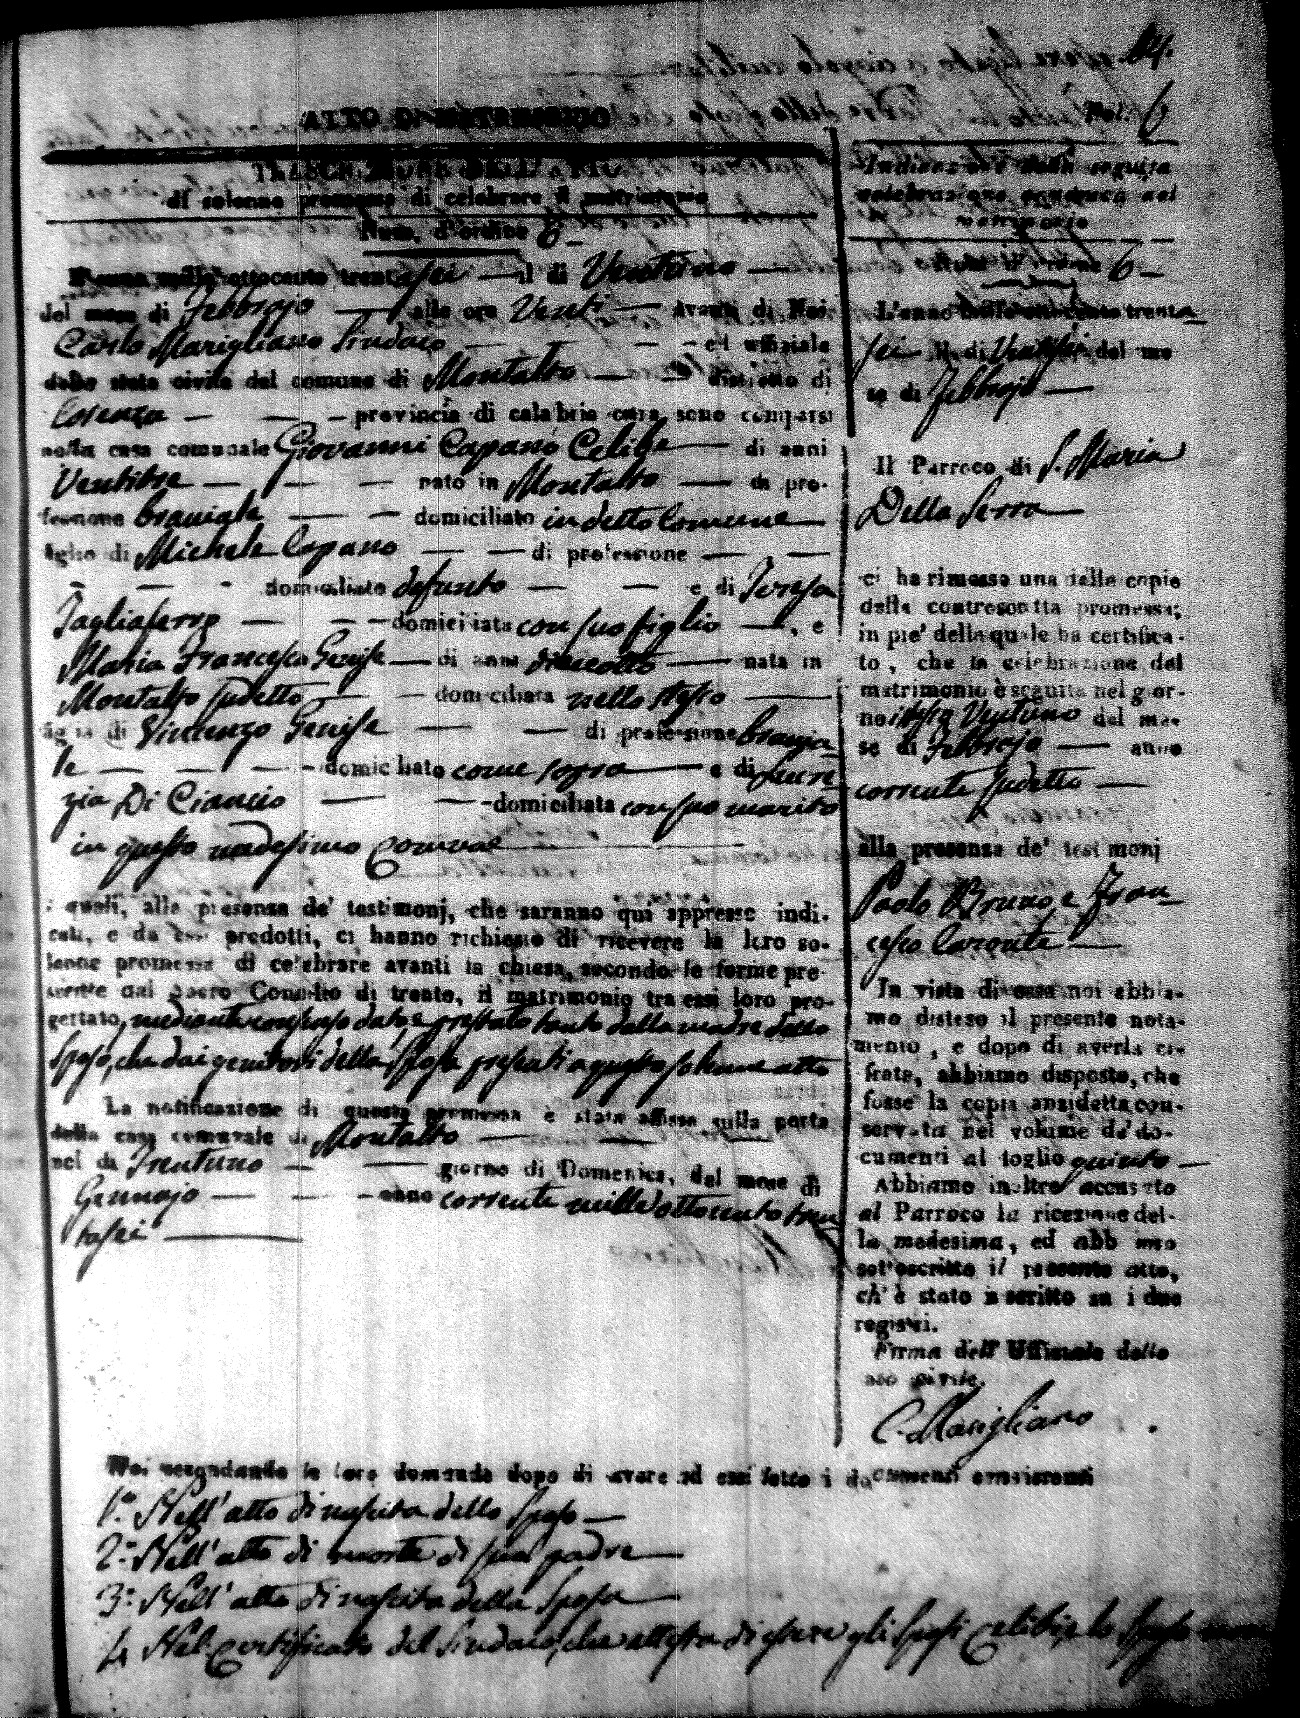 Fol. 6
ATTO DI MATRIMONIO
TRASCRIZIONE DELL'ATTO
di solenne promessa di celebrare il matrimonio
Num. d'ordine 6
L'anno mille ottocento trentasei il di Ventuno
del mese di Febbrajo alle ore Venti avanti di Noi
Carlo Marigliano Sindaco ed uffiziale
dello stato civile del comune di Montalto distretto di
Cosenza provincia di calabria citra sono comparsi
nella casa comunale Giovanni Capano Celibe di anni
Ventitre nato in Montalto di pro-
fessione bracciale domiciliato in detto Comune
figlio di Michele Capano di professione
domiciliato defunto e di Teresa
Tagliaferro domiciliata con suo figlio, e
Maria Francesca Genise di anni dieciotto nata in
Montalto sudetto domiciliata nello stesso
figlia di Vincenzo Genise di professione braccia-
le domiciliato come sopra e di Lucre-
zia Di Ciancio domiciliata con suo marito
in questo medesimo Comune
i quali, alla presenza de' testimonj, che saranno qui appresso indi-
cati, e da essi prodotti, ci hanno richiesto di ricevere la loro so-
lenne promessa di celebrare avanti la chiesa, secondo le forme pre-
scritte dal sacro Concilio di trento, il matrimonio tra essi loro pro-
gettato, mediante consenso dato e prestato tanto dalla madre dello
Sposo, che dai genitori della Sposa presenti a questo solenne atto
La notificazione di questa promessa è stata affissa sulla porta
della casa comunale di Montalto
nel di Trentuno giorno di Domenica, del mese di
Gennajo anno corrente mille ottocento tren
tasei
Indicazione della seguita
celebrazione canonica del
matrimonio
Num. d'ordine 6
L'anno mille ottocento trenta
sei il di del me
se di Febbrajo
Il Parroco di S. Maria
Della Serra
ci ha rimesso una delle copie
della controscritta promessa;
in piè della quale ha certifica-
to, che la celebrazione del
matrimonio è seguita nel gior-
no istesso Ventuno del me-
se di Febbrajo anno
corrente sudetto
alla presenza de' testimonj
Paolo Bruno e Fran-
cesco
In vista di essa noi abbia-
mo disteso il presente nota-
mento, e dopo di averla ci-
frata, abbiamo disposto, che
fosse la copia anzidetta con-
servata nel volume de' do-
cumenti al foglio quinto
Abbiamo inoltre accusato
al Parroco la ricezione del-
la medesima, ed abbiamo
sottoscritto il presente atto,
ch' è stato inscritto su i due
registri.
Firma dell' Uffiziale dello
stato civile.
C. Marigliano
Noi secondando la loro domanda dopo di avere ad essi letto i documenti consistenti
1.° Nell'atto di nascita dello Sposo
2.° Nell'atto di morte di suo padre
3.° Nell'atto di nascita della Sposa
4 Nel Certificato del Sindaco, che attesta di essere gli Sposi Celibi, e lo Sposo